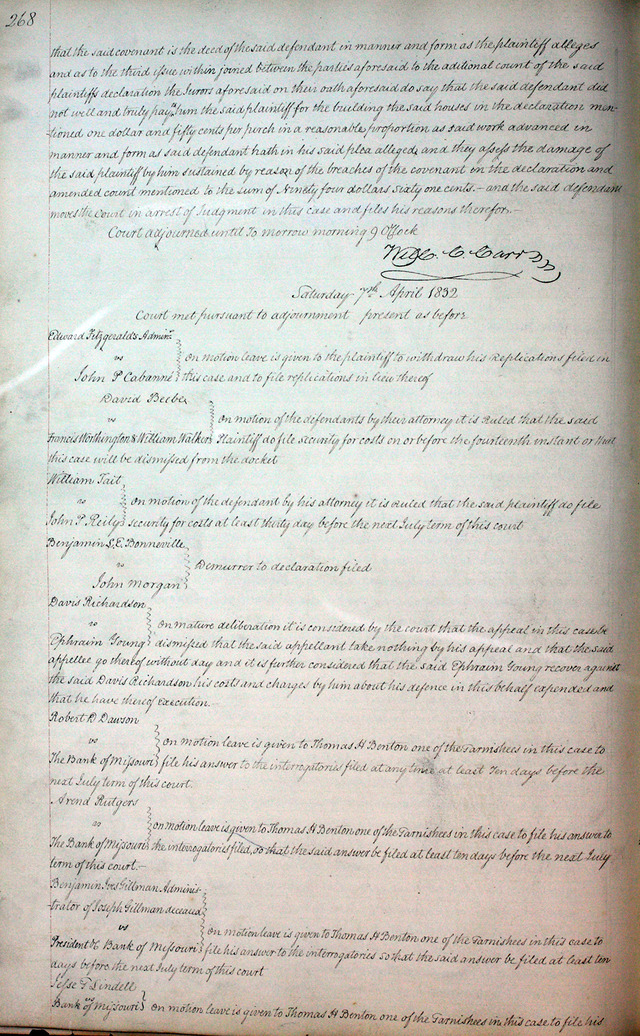 268
that the said covenant is the deed of the said defendant in manner and form as the plaintiff alleges
and as to the third issue within joined between the parties aforesaid to the aditional count of the said
plaintiffs declaration the Jurors aforesaid on their oath aforesaid do say that the said defendant did
not well and truly pay him the said plaintiff for the building the said houses in the declaration men-
-tioned one dollar and fifty cents per perch in a reasonable proportion as said work advanced in
manner and form as said defendant hath in his said plea alleged, and they assess the damage of
the said plaintiff by him sustained by reason of the breaches of the covenant in the declaration and
amended count mentioned to the sum of Ninety four dollars sixty one cents.— and the said defendant
moves the Court in arrest of Judgment in this case and files his reasons therefor.—
Court adjourned until To morrow morning 9 OClock
Will. C. Carr
Saturday 7th April 1832
Court met pursuant to adjournment present as before
Edward Fitzgerald's Admin.r
vs
on motion leave is given to the plaintiff to withdraw his Replications filed in
John P Cabanne this case and to file replications in lieu thereof
David Beebe
vs
on motion of the defendants by their attorney it is Ruled that the said
Francis Worthington & William Walker Plaintiff do file security for costs on or before the fourteenth instant or that
this case will be dismissed from the docket
William Tait
vs
on motion of the defendant by his attorney it is ruled that the said plaintiff do file
John P. Reily security for costs at least thirty day before the next July term of this court
Benjamin L. E. Bonneville
vs
Demurrer to declaration filed
John Morgan
Davis Richardson
vs
on mature deliberation it is considered by the court that the appeal in this case be
Ephraim Young dismissed that the said appellant take nothing by his appeal and that the said
appellee go thereof without day and it is further considered that the said Ephraim Young recover against
the said Davis Richardson his costs and charges by him about his defence in this behalf expended and
that he have thereof execution.—
Robert D Dawson
vs
on motion leave is given to Thomas H Benton one of the Garnishees in this case to
The Bank of Missouri file his answer to the interrogatories filed at any time at least Ten days before the
next July term of this court.
Arend Rutgers
vs
on motion leave is given to Thomas H Benton one of the Garnishees in this case to file his answer to
The Bank of Missouri the interrogatories filed, so that the said answer be filed at least ten days before the next July
term of this court.—
Benjamin Ives Gillman Adminis-
-trator of Joseph Gillman deceased
vs
on motion leave is given to Thomas H Benton one of the Garnishees in this case to
President &c Bank of Missouri file his answer to the interrogatories so that the said answer be filed at least ten
days before the next July term of this court
Jesse G Lindell
vs
Bank of Missouri on motion leave is given to Thomas H Benton one of the Garnishees in this case to file his